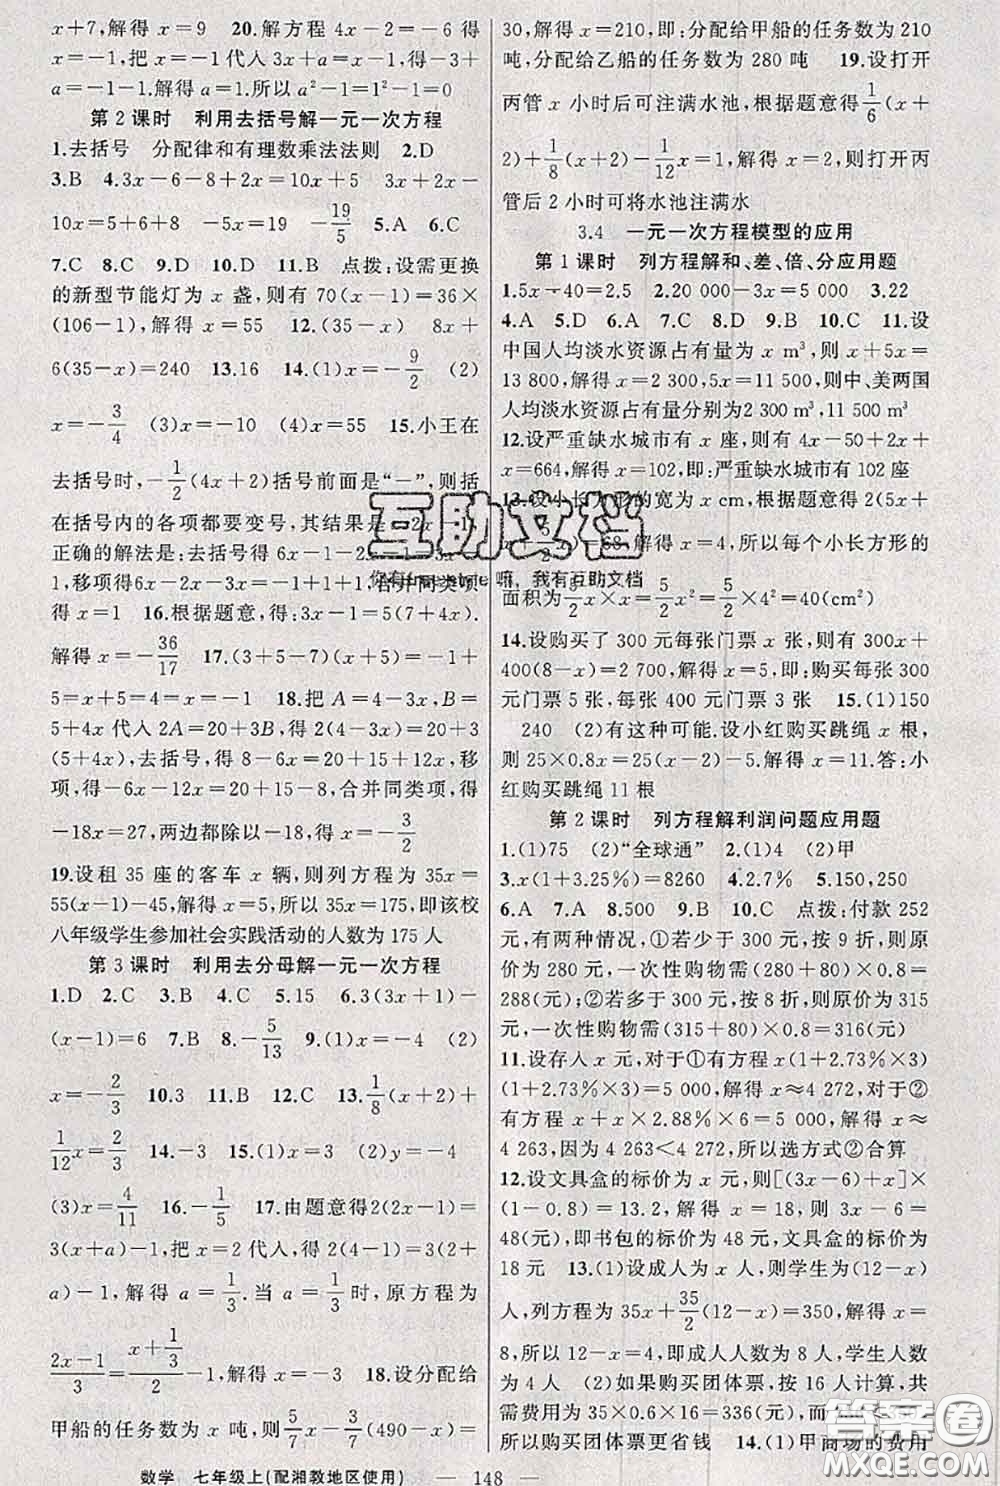 x+7,解得 x=9　20.解方程 4x-2=-6 得
x=-1.把 x=-1 代入 3x+a=x 中,得-3+
a=-1.解得 a=1.所以 a²-1=1²-1=0
第 2 课时　利用去括号解一元一次方程
1.去括号　分配律和有理数乘法法则　2.D
3.B　4.3x-6-8+2x=10x+5　3x+2x-
10x=5+6+8　-5x=19　x=-19/5　5.A　6.C
7.C　8.C　9.D　10.D　11.B　点拨:设需更换
的新型节能灯为 x 盏,则有 70(x-1)=36×
(106-1),解得 x=55　12.(35-x)　8x+
6(35-x)=240　13.16　14.(1)x=-9/2　(2)
x=-3/4　(3)x=-10　(4)x=55　15.小王在
去括号时,-1/2(4x+2)括号前面是“-”,则括
在括号内的各项都要变号,其结果是-2x-1
正确的解法是:去括号得 6x-1-2x-1=3x+
1,移项得 6x-2x-3x=1+1+1,合并同类项
得 x=1　16.根据题意,得 3x-1=5(7+4x).
解得 x=-36/17　17.(3+5-7)(x+5)=-1+
5=x+5=4=x=-1　18.把 A=4-3x,B=
5+4x 代入 2A=20+3B,得 2(4-3x)=20+3
(5+4x).去括号,得 8-6x=20+15+12x,移
项,得-6x-12x=20+15-8,合并同类项,得
-18x=27,两边都除以-18,得 x=-3/2
19.设租 35 座的客车 x 辆,则列方程为 35x=
55(x-1)-45,解得 x=5,所以 35x=175,即该校
八年级学生参加社会实践活动的人数为 175 人
第 3 课时　利用去分母解一元一次方程
1.D　2.C　3.B　4.C　5.15　6.3(3x+1)-
(x-1)=6　7.B　8.-5/13　9.(1)x=-4　(2)
x=-2/3　10.3　11.B　12.C　13.1/8(x+2)+
1/12x=2/3　14.-3　15.(1)x=1　(2)y=-4
(3)x=4/11　16.-1/5　17.由题意得2(2x-1)=
3(x+a)-1,把 x=2 代入,得 2(4-1)=3(2+
a)-1,解得 a=1/3.当 a=1/3时,原方程为
(2x-1)/3=(x+1/3)/2-1,解得 x=-3　18.设分配给
甲船的任务数为 x 吨,则 5/7x-3/7(490-x)=
30.解得 x=210,即:分配给甲船的任务数为 210
吨,分配给乙船的任务数为 280 吨　19.设打开
丙管 x 小时后可注满水池,根据题意得1/6(x+
2)+1/8(x+2)-1/12x=1,解得 x=2,则打开丙
管后 2 小时可将水池注满水
3.4　一元一次方程模型的应用
第 1 课时　列方程解和、差、倍、分应用题
1.5x-40=2.5　2.20 000-3x=5 000　3.22
4.A　5.D　6.A　7.C　8.B　9.B　10.C　11.设
中国人均淡水资源占有量为 x m³,则 x+5x=
13 800,解得 x=2 300,5x=11 500,则中、美两国
人均淡水资源占有量分别为2 300 m³,11 500 m³
12.设严重缺水城市有 x 座,则有 4x-50+2x+
x=664,解得 x=102,即:严重缺水城市有 102 座
13.设小长方形的宽为 x cm,根据题意得 2(5x+
解得 x=4,所以每个小长方形的
面积为5/2x×x=5/2x²=5/2×4²=40(cm²)
14.设购买了 300 元每张门票 x 张,则有 300x+
400(8-x)=2 700,解得 x=5,即:购买每张 300
元门票 5 张,每张 400 元门票 3 张　15.(1)150
240　(2)有这种可能.设小红购买跳绳 x 根,
则 25×0.8x=25(x-2)-5,解得 x=11.答:小
红购买跳绳 11 根
第 2 课时　列方程解利润问题应用题
1.(1)75　(2)“全球通”　2.(1)4　(2)甲
3.x(1+3.25%)=8260　4.2.7%　5.150,250
6.A　7.A　8.500　9.B　10.C　点拨:付款 252
元,有两种情况,①若少于 300 元,按 9 折,则原
价为 280 元,一次性购物需(280+80)×0.8=
288(元);②若多于 300 元,按 8 折,则原价为 315
元,一次性购物需(315+80)×0.8=316(元)
11.设存入 x 元,对于①有方程 x(1+2.73%×3)
(1+2.73%×3)=5 000,解得 x≈4 272,对于②
有方程 x+x×2.88%×6=5 000,解得 x≈
4 263,因为 4 263<4 272,所以选方式②合算
12.设文具盒的标价为 x 元,则[(3x-6)+x]×
(1-0.8)=13.2,解得 x=18,则 3x-6=
48(元),即:书包的标价为 48 元,文具盒的标价为
18 元　13.(1)设成人为 x 人,则学生为(12-x)
人,列方程为 35x+35/2(12-x)=350,解得 x=
8,所以 12-x=4,即成人人数为 8 人,学生人数
为 4 人　(2)如果购买团体票,按 16 人计算,共
需费用为 35×0.6×16=336(元),而
所以购买团体票更省钱　14.(1)甲商场的费用
数学　七年级上(配湘教地区使用)　— 148 —
互助文档
嘛,我有互助文档
答案卷